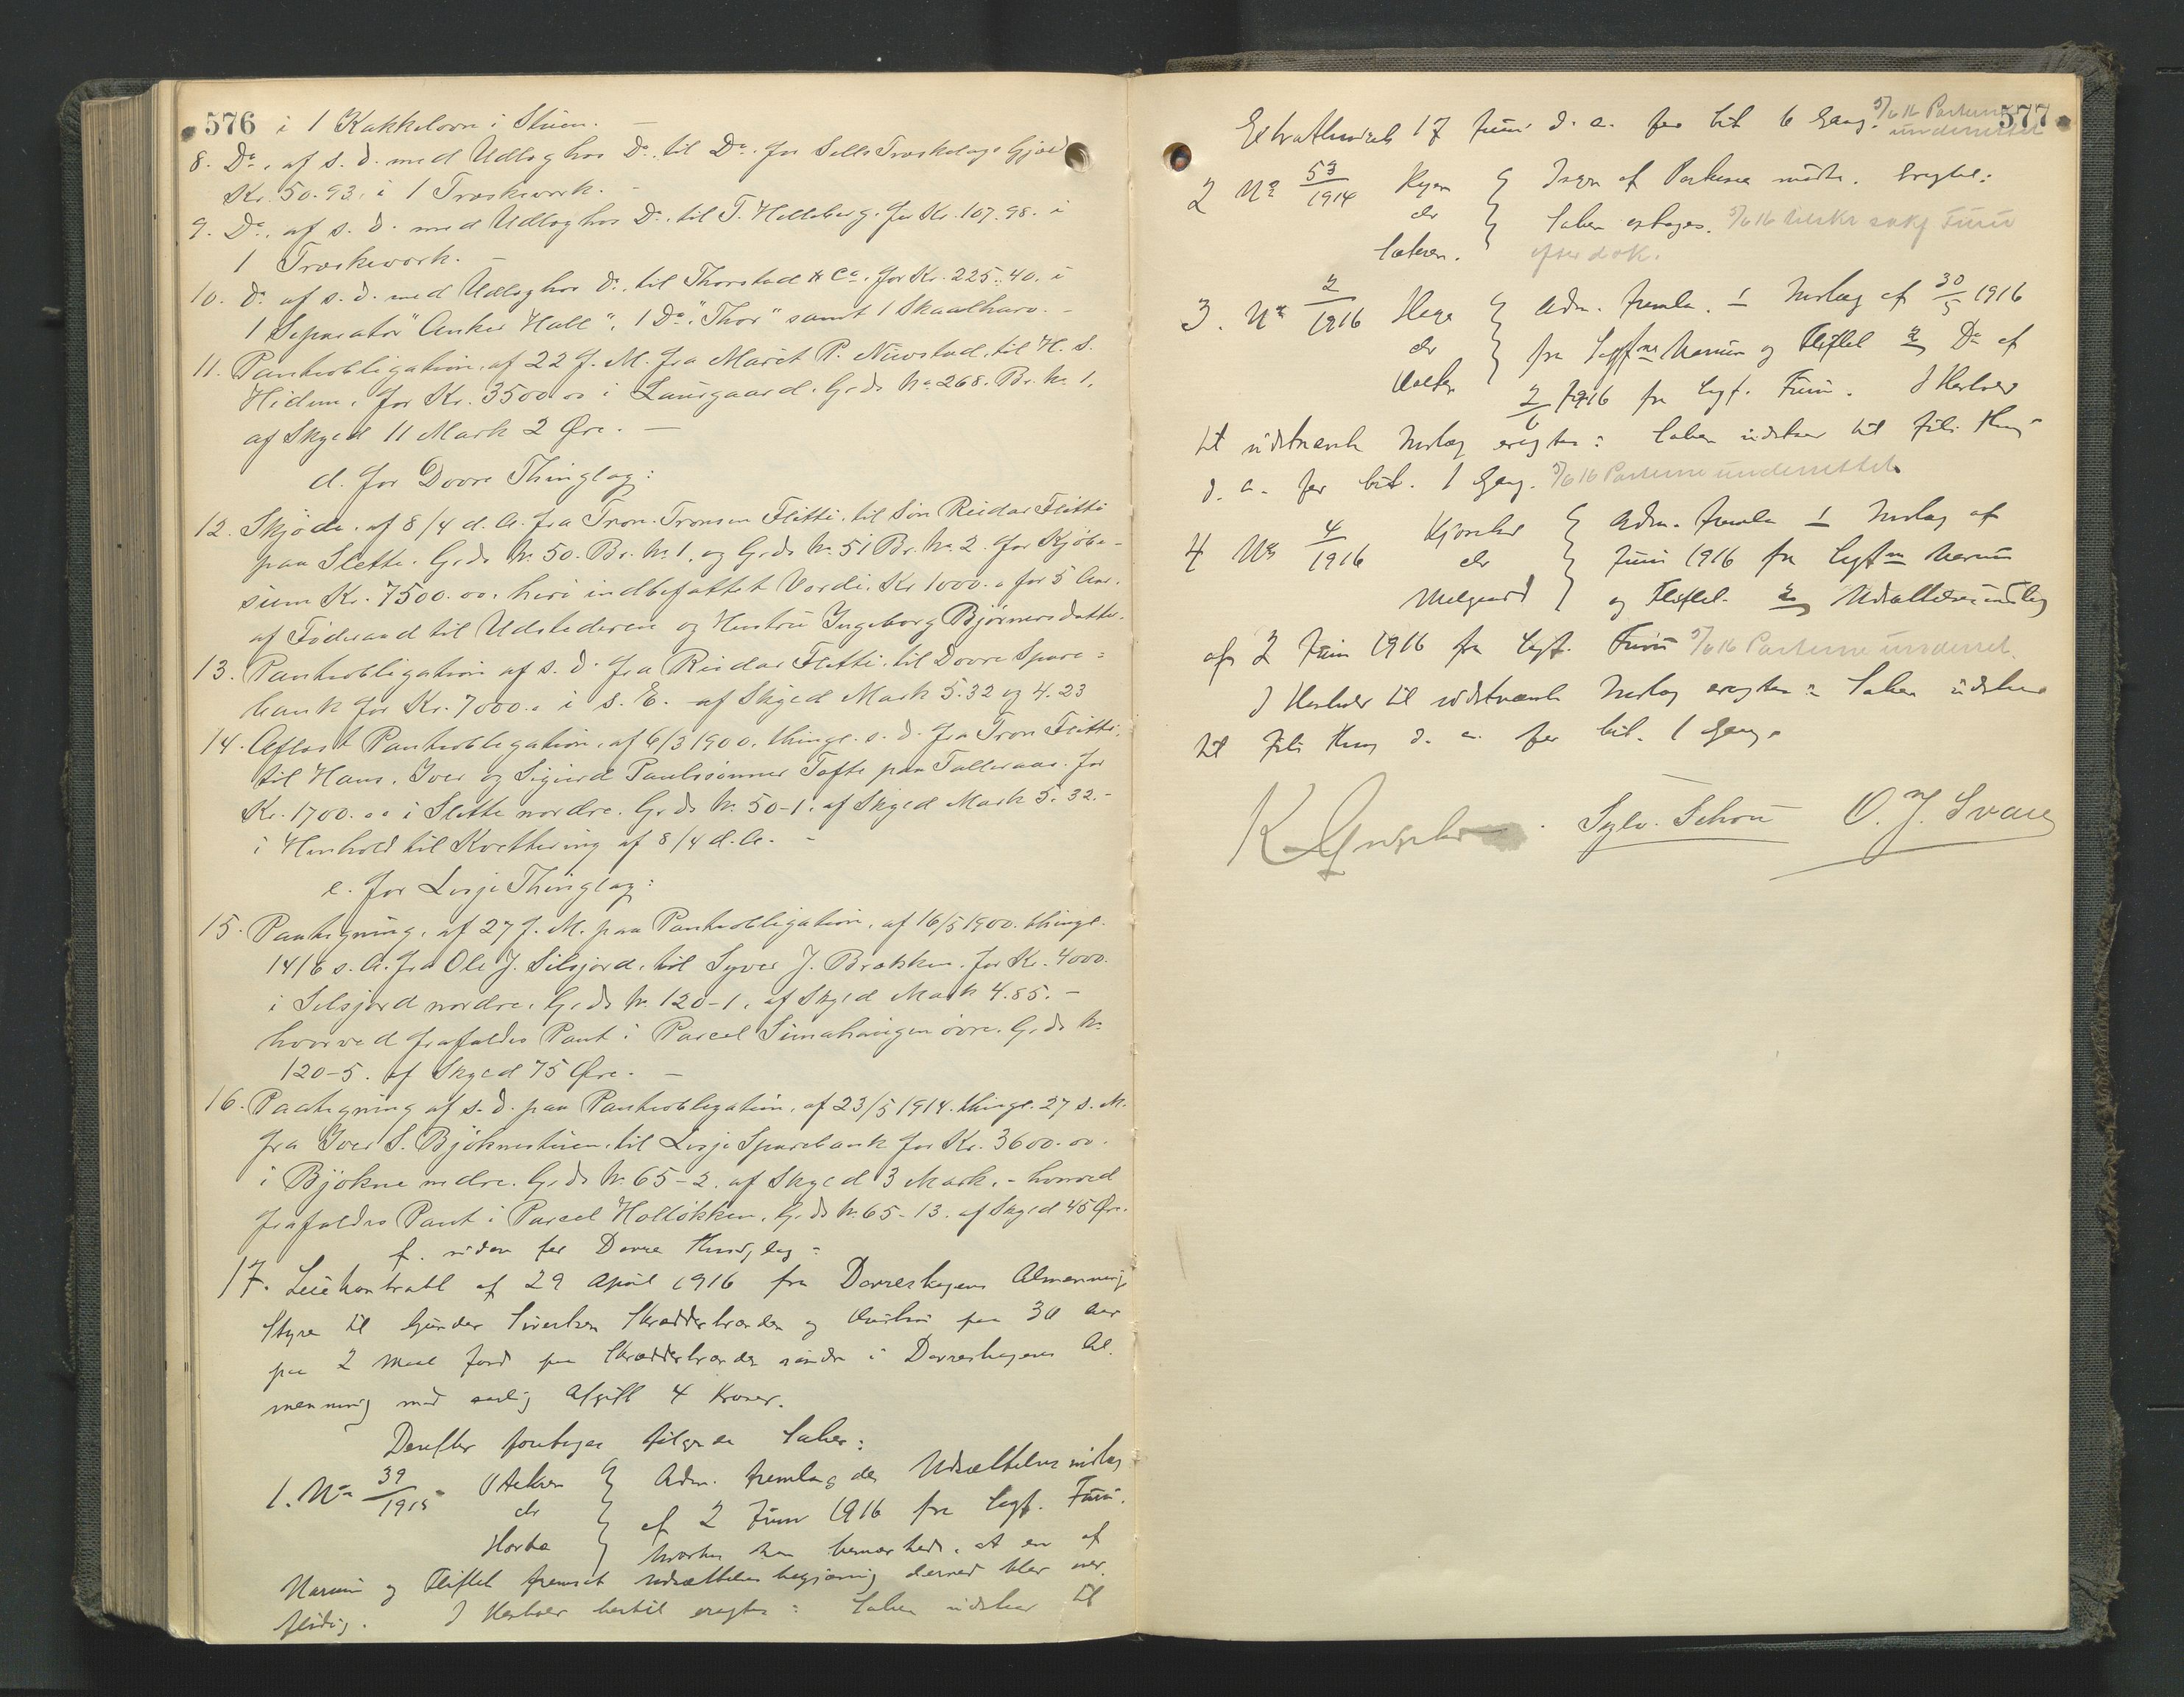 576 i 1 Kakkelovn i Stuen. —
8. Do. af s. D. med Udlæg hos Do. til Do. for Sells Træskolage Gjæld
Kr. 50.93. i 1 Træskeværk. —
9. Do. af s. D. med Udlæg hos Do. til T. Helleberg. for Kr. 107.98. i
1 Træskeværk. —
10. Do. af s. D. med Udlæg hos Do. til Thorstad & Co. for Kr. 225.40. i
1 Separator "Anker Hall", 1 Do. "Thor" samt 1 Skaalharv. —
11. Panteobligation af 22 f. M. fra Marit P. Niustad, til H. S.
Hidem, for Kr. 3500.00 i Laurgaard. G. do No 268. Br. No 1.
af Skyld 11 Mark 2 Øre. —
d. for Dovre Thinglag:
12. Skjøde. af 8/4 d. A. fra Tron Tronsen Flitti. til Søn Reidar Flitti
paa Slette. G. do No 50. Br. No 1. og G. do No 51 Br. No 2. for Kjøbe-
sum Kr. 7500.00. heri indbefattet Værdi. Kr 1000.00 for 5 Aar.
af Føderaad til Udstederen og Hustru Ingeborg Bjørnersdatter.
13. Panteobligation af s. D. fra Reidar Flitti, til Dovre Spare=
bank for Kr. 7000.00 i s. E. af Skyld Mark 5.32 og 4.23
14. Aflæst Panteobligation, af 6/3 1900. thingl. s. D. fra Tron Flitti.
til Hans, Iver og Sigurd Paulssønner Tofte paa Talleraas. for
Kr. 1700.00 i Slette nordre. G. do No 50-1. af Skyld Mark 5.32.-
i Henhold til Kvittering af 8/4 d. A. -
e. for Lesje Thinglag:
15. Paategning. af 27 f. M. paa Panteobligation, af 16/5 1900. thingl.
14/6 s. A. fra Ole J. Selsjord. til Syver J. Brækken. for Kr. 4000.
i Selsjord nordre. G. do No 120-1. af Skyld Mark 4.85. -
hvorved frafaldes Pant i Parcel øvre. G. do No
120-5. af Skyld 75 Øre. —
16. Paategning af s. D. paa Panteobligation, af 23/5 1914. thingl. 27 s. M.
fra Iver S. Bjøknestuen, til Lesje Sparebank for Kr. 3600.00.
i Bjøkne nedre. G. do No 65-2. af Skyld 3 Mark. - hvorved
frafaldes Pant i Parcel Holløkken. G. do No 65-13. af Skyld 45 Øre.
f. viden for Dovre Thinglag:
17. Leiekontrakt af 29 April 1916 fra Dovreskogens Almennings
Styre til Gunder Sivertsen Skrædderbrænden og Hustru paa 30 Aar
paa 2 Maal Jord paa Skrædderbrænden søndre i Dovreskogens Al-
menning mod aarlig Afgift 4 Kroner.
Derefter foretoges følgende Saker:
1. No 39/1915 Adm. fremlagde Udsættelses indlæg
ctr af 2 Juni 1916 fra Sagf. Furu.
Horba hvorhos han bemærkede, at en af
Narum og Fliflet fremsat Udsættelsesbegjæring dermed blev over-
flødig. I Henhold hertil eragtes: Saken udstaar til
577
Extrathinget 17 Juni d. a. for bet 6 Gang. 5/6 16 Parterne underrettet
2 No 53/1914 Ingen af Parterne mødte. Eragtet:
ctr Saken optages. 5/6 16 tilskr sakf Furu
efter dok.
3. No 2/1916 Adm. fremla. 1 Indlæg af 30/5 1916
ctr fra Sagf. Narum og Fliflet 2 Do af
2/6 1916 fra Sagf. Furu. I Henhold
til nidstnævnte Indlæg eragtes: Saken udstaar til Juli Thing
d. a. for bet. 1 Gang. 5/6 16 Parterne underrettet
4 No 4/1916 Adm. fremla 1 Indlæg af
ctr Juni 1916 fra Sagf. Narum
og Fliflet. 2 Udsættelsesindlæg
af 2 Juni 1916 fra Sagf. Furu 5/6 16 Parterne underret.
I Henhold til sidstnævnte Indlæg eragtes: Saken udstaar
til Juli Thing d. a. for bet. 1 Gang.
Sylv. Schou O. J. Svare